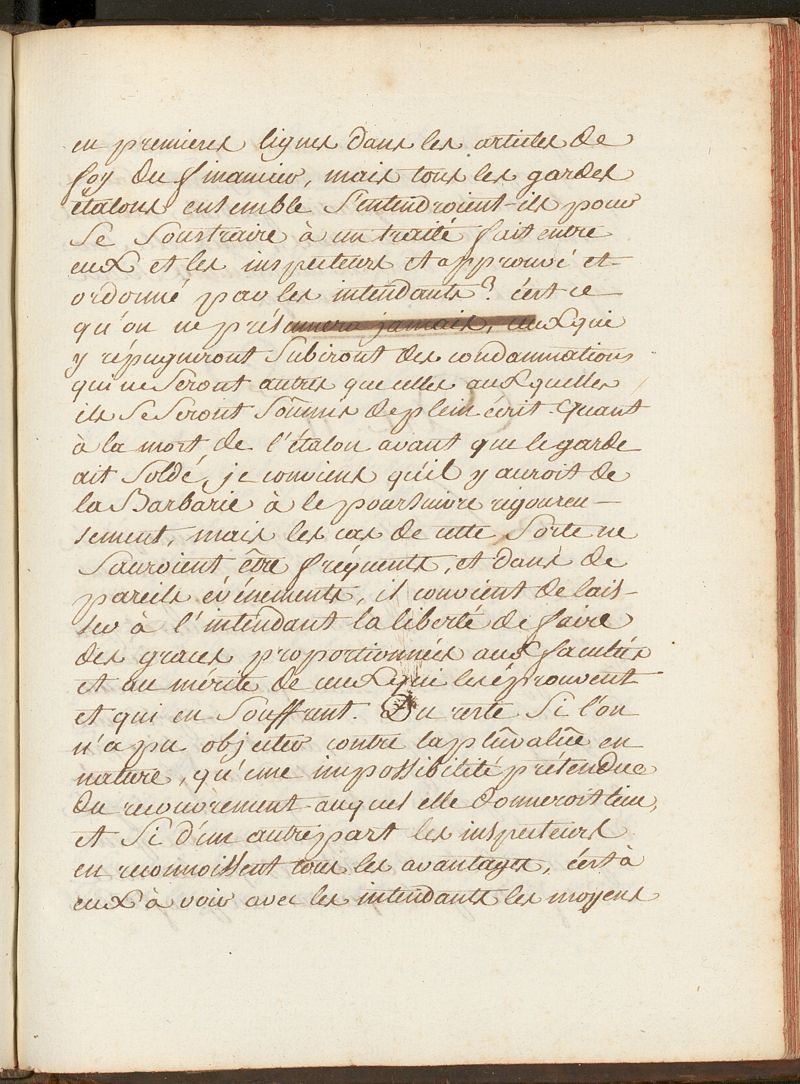 en premieres lignes dans les articles de
foy du financier, mais tous les gardes
étalons ensemble s'entendroient-ils pour
se soustraire à un traité fait entre
eux et les inspecteurs et approuvé et
ordonné par les intendants? c'est ce
qu'on ne présumera jamais, ceux qui
y répugneront subiront des condamnations
qui ne seront autres que celles auxquelles
ils se seront soûmis de plein écrit. Quant
à la mort de l'étalon avant que le garde
ait soldé, je conviens qu'il y auroit de
la Barbarie à le poursuivre rigoureu-
sement, mais les cas de cette sorte ne
sauroient être fréquents, et dans de
pareils événements, il convient de lais-
ser à l'intendant la liberté de faire
des graces proportionnées aux facultés
et au mérite de ceux qui les éprouvent
et qui en souffrent. Du reste si l'on
n'a pu objecter contre la plûvalüe en
nature, qu'une impossibilité prétendue
du recouvrement auquel elle donneroit lieu,
et si d'un autre part les inspecteurs
en reconnoissent tous les avantages, c'est à
eux à voir avec les intendants les moyens